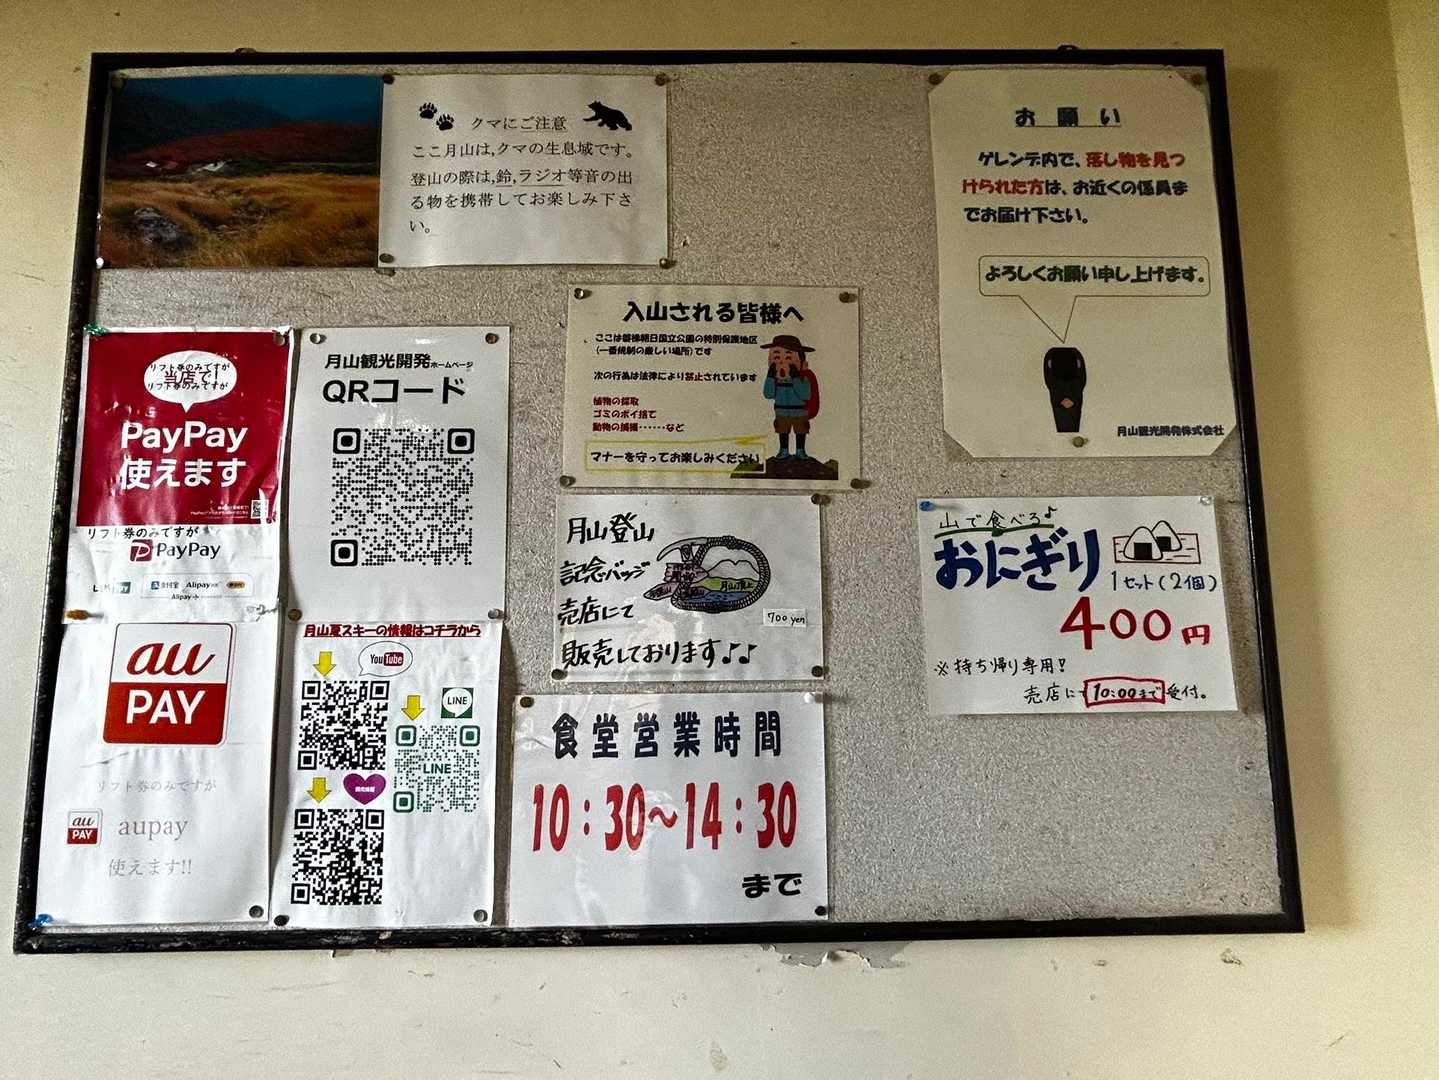 クマにご注意
ここ月山は,クマの生息域です。
登山の際は,鈴,ラジオ等音の出
る物を携帯してお楽しみ下さ
い。
お願い
ゲレンデ内で、落し物を見つ
けられた方は、お近くの係員ま
でお届け下さい。
よろしくお願い申し上げます。
月山観光開発株式会社
入山される皆様へ
ここは磐梯朝日国立公園の特別保護地区
(一番規制の厳しい場所)です
次の行為は法律により禁止されています
植物の採取
ゴミのポイ捨て
動物の捕獲・・・・・・など
マナーを守ってお楽しみください
リフト券のみですが
当店で!
リフト券のみですが
PayPay
使えます
リフト券のみですが
PayPay
Alipay
Alipay+
月山観光開発ホームページ
QRコード
月山登山
記念バッジ
売店にて
販売しております♪♪
700 yen
山で食べる♪
おにぎり
1セット(2個)
400円
※持ち帰り専用!
売店にて10:00まで受付。
au
PAY
リフト券のみですが
au
PAY
aupay
使えます!!
月山夏スキーの情報はコチラから
YouTube
LINE
LINE
食堂営業時間
10:30〜14:30
まで